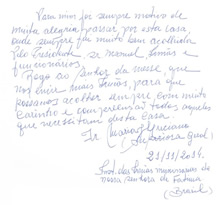 Para mim foi sempre motivo de
muita alegria passar por esta casa,
onde sempre fui muito bem acolhida
pelo Presidente, sr Manuel Simões e
funcionários.
Rogo ao Senhor da messe, que
nos envie mais Irmãs, para que
possamos acolher sempre, com muito
carinho e compreensão todos aqueles
que necessitam desta casa.
Ir
(Superiora Geral)
23/11/2014
Inst. das Irmãs Missionárias de
Nossa Senhora de Fátima
(Brasil)